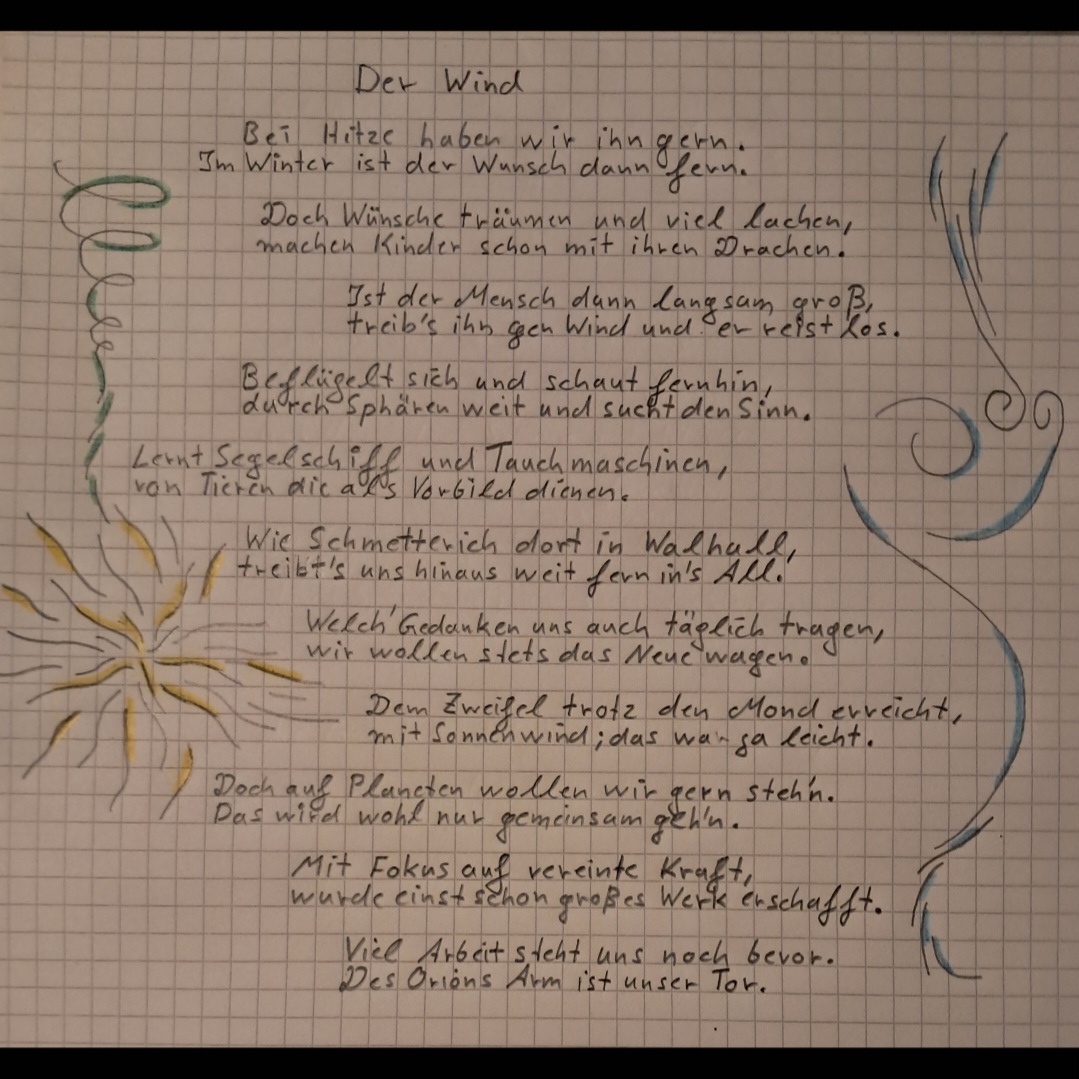 Der Wind
Bei Hitze haben wir ihn gern.
Im Winter ist der Wunsch dann fern.
Doch Wünsche träumen und viel lachen,
machen Kinder schon mit ihren Drachen.
Ist der Mensch dann langsam groß,
treib's ihn gen Wind und er reist los.
Beflügelt sich und schaut fernhin,
durch Sphären weit und sucht den Sinn.
Lernt Segelschiff und Tauchmaschinen,
von Tieren die als Vorbild dienen.
Wie Schmetterich dort in Walhall,
treibt's uns hinaus weit fern in's All.
Welch' Gedanken uns auch täglich tragen,
wir wollen stets das Neue wagen.
Dem Zweifel trotz den Mond erreicht,
mit Sonnenwind; das war ja leicht.
Doch auf Planeten wollen wir gern steh'n.
Das wird wohl nur gemeinsam geh'n.
Mit Fokus auf vereinte Kraft,
wurde einst schon großes Werk erschafft.
Viel Arbeit steht uns noch bevor.
Des Orions Arm ist unser Tor.